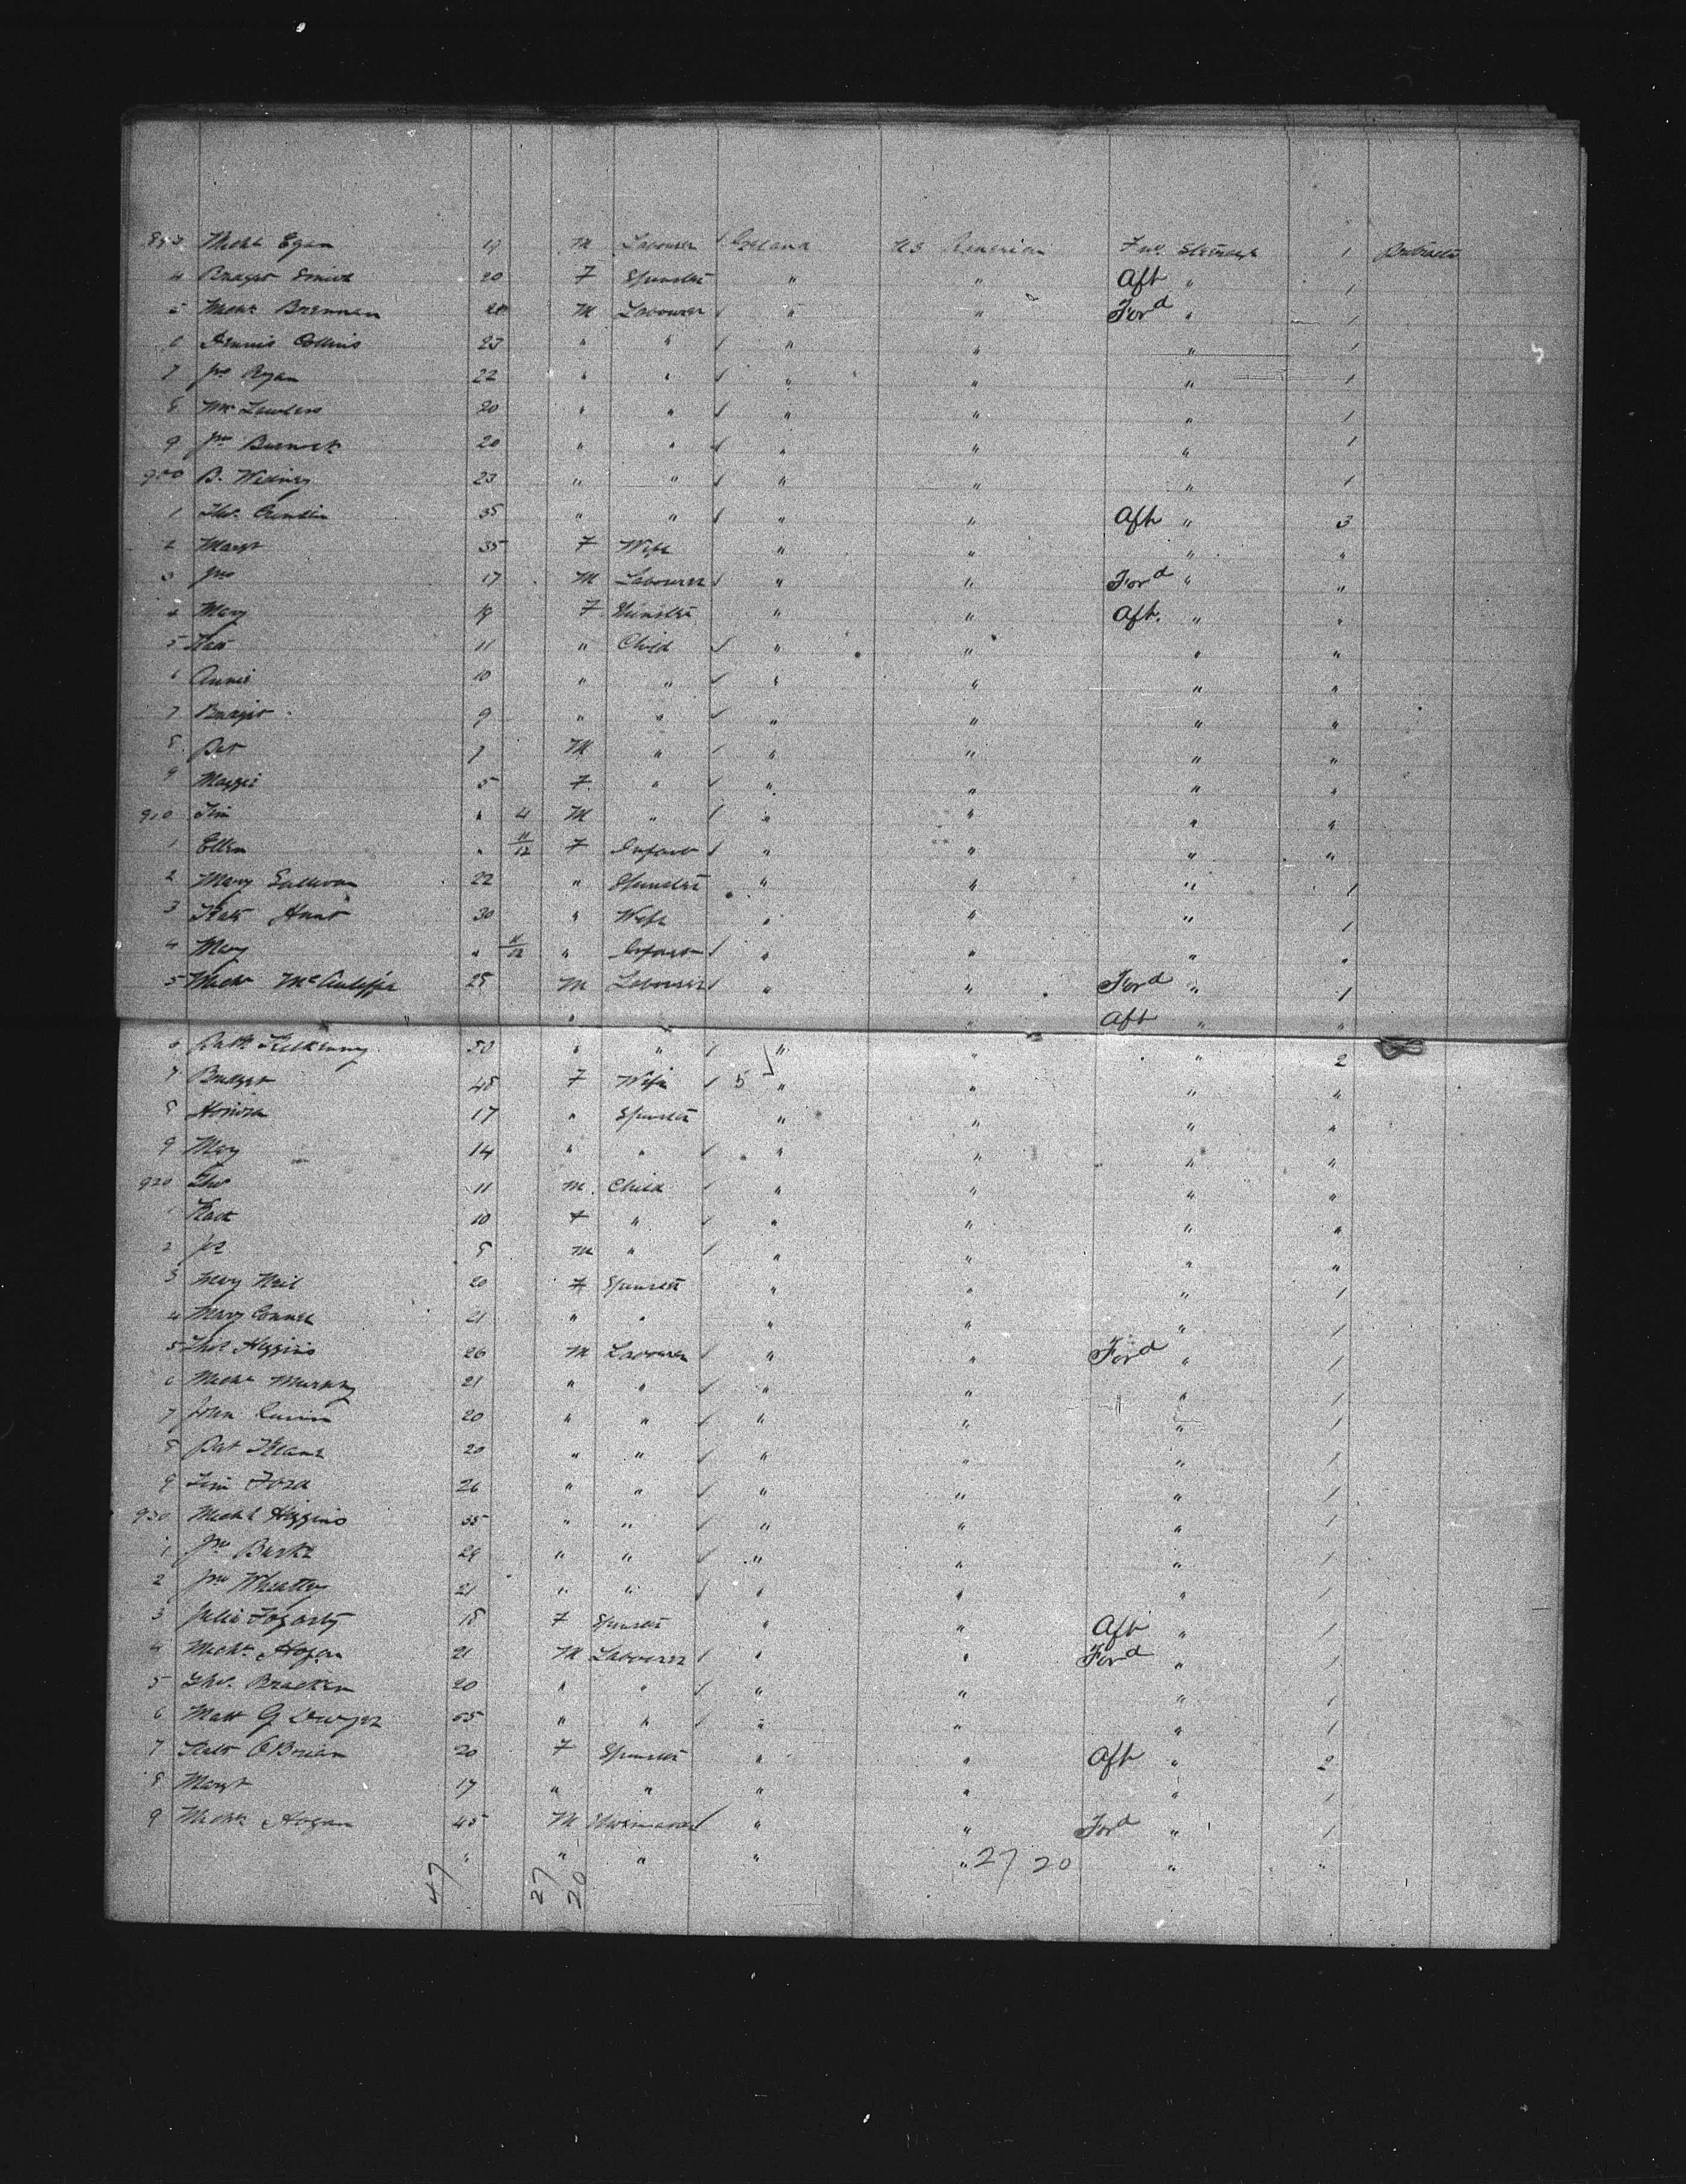 893 Michl Egan 19 M Labourer / Ireland US America Fwd. Steerage 1 Protracted
4 Bridget Smith 20 F Spinster " " Aft " 1
5 Michl Brennan 20 M Labourer / " " Ford " 1
6 Dennis Collins 23 " " / " " " 1
7 Jno Ryan 22 " " / " " " 1
8 Wm Lawless 20 " " / " " " 1
9 Jno 20 " " / " " " 1
900 B. 23 " " / " " " 1
1 Thos. 35 " " / " " Aft " 3
2 Margt 35 F Wife " " " "
3 Jno 17 M Labourer / " " Ford " "
4 Mary 19 F Spinster " " Aft. " "
5 Kate 11 " Child / " " " "
6 Annie 10 " " / " " " "
7 Bridget 9 " " / " " " "
8 Pat 7 M " / " " " "
9 Maggie 5 F " / " " " "
910 Tim " 4 M " / " " " "
1 Ellen " 11/12 F Infant / " " " "
2 Mary Sullivan 22 " Spinster " " " 1
3 Kate Hunt 30 " Wife " " " 1
4 Mary " 11/12 " Infant / " " " "
5 Michl McAuliffe 25 M Labourer / " " Ford " 1
" " " Aft " "
6 Patk Kilkenny 50 " " / " " " 2
7 Bridget 45 F Wife / 5 " " " "
8 Honora 17 " Spinster " " " "
9 Mary 14 " " / " " " "
920 Thos 11 M. Child / " " " "
1 Kate 10 F " / " " " "
2 Jas 8 M " / " " " "
3 Mary Neil 20 F Spinster " " " 1
4 Mary Connell 21 " " " " " 1
5 Thos Higgins 26 M Labourer / " " Ford " 1
6 Michl Murphy 21 " " / " " " 1
7 John 20 " " / " " " 1
8 Pat Keane 20 " " / " " " 1
9 Tim Ford 26 " " / " " " 1
930 Michl Higgins 35 " " / " " " 1
1 Jno Burke 29 " " / " " " 1
2 Jno Wheatley 21 " " / " " " 1
3 Julia Fogarty 18 F Spinster " " Aft " 1
4 Michl. Hogan 21 M Labourer / " " Ford " 1
5 Thos. Bracken 20 " " / " " " 1
6 Matt G Dwyer 65 " " / " " " 1
7 Kate O'Brien 20 F Spinster " " Aft " 2
8 Margt 17 " " " " " 1
9 Michl Hogan 45 M / " " Ford " 1
" " " " " 27 20 " "
47 27 20